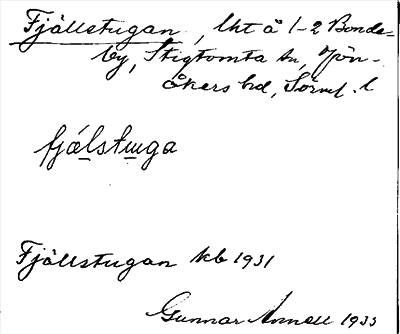 Fjällstugan, lht å 1-2 Bonde-
by, Stigtomta sn, Jön-
åkers hd, Sörml. l
fjälstuga
Fjällstugan kb 1931
Gunnar 1933